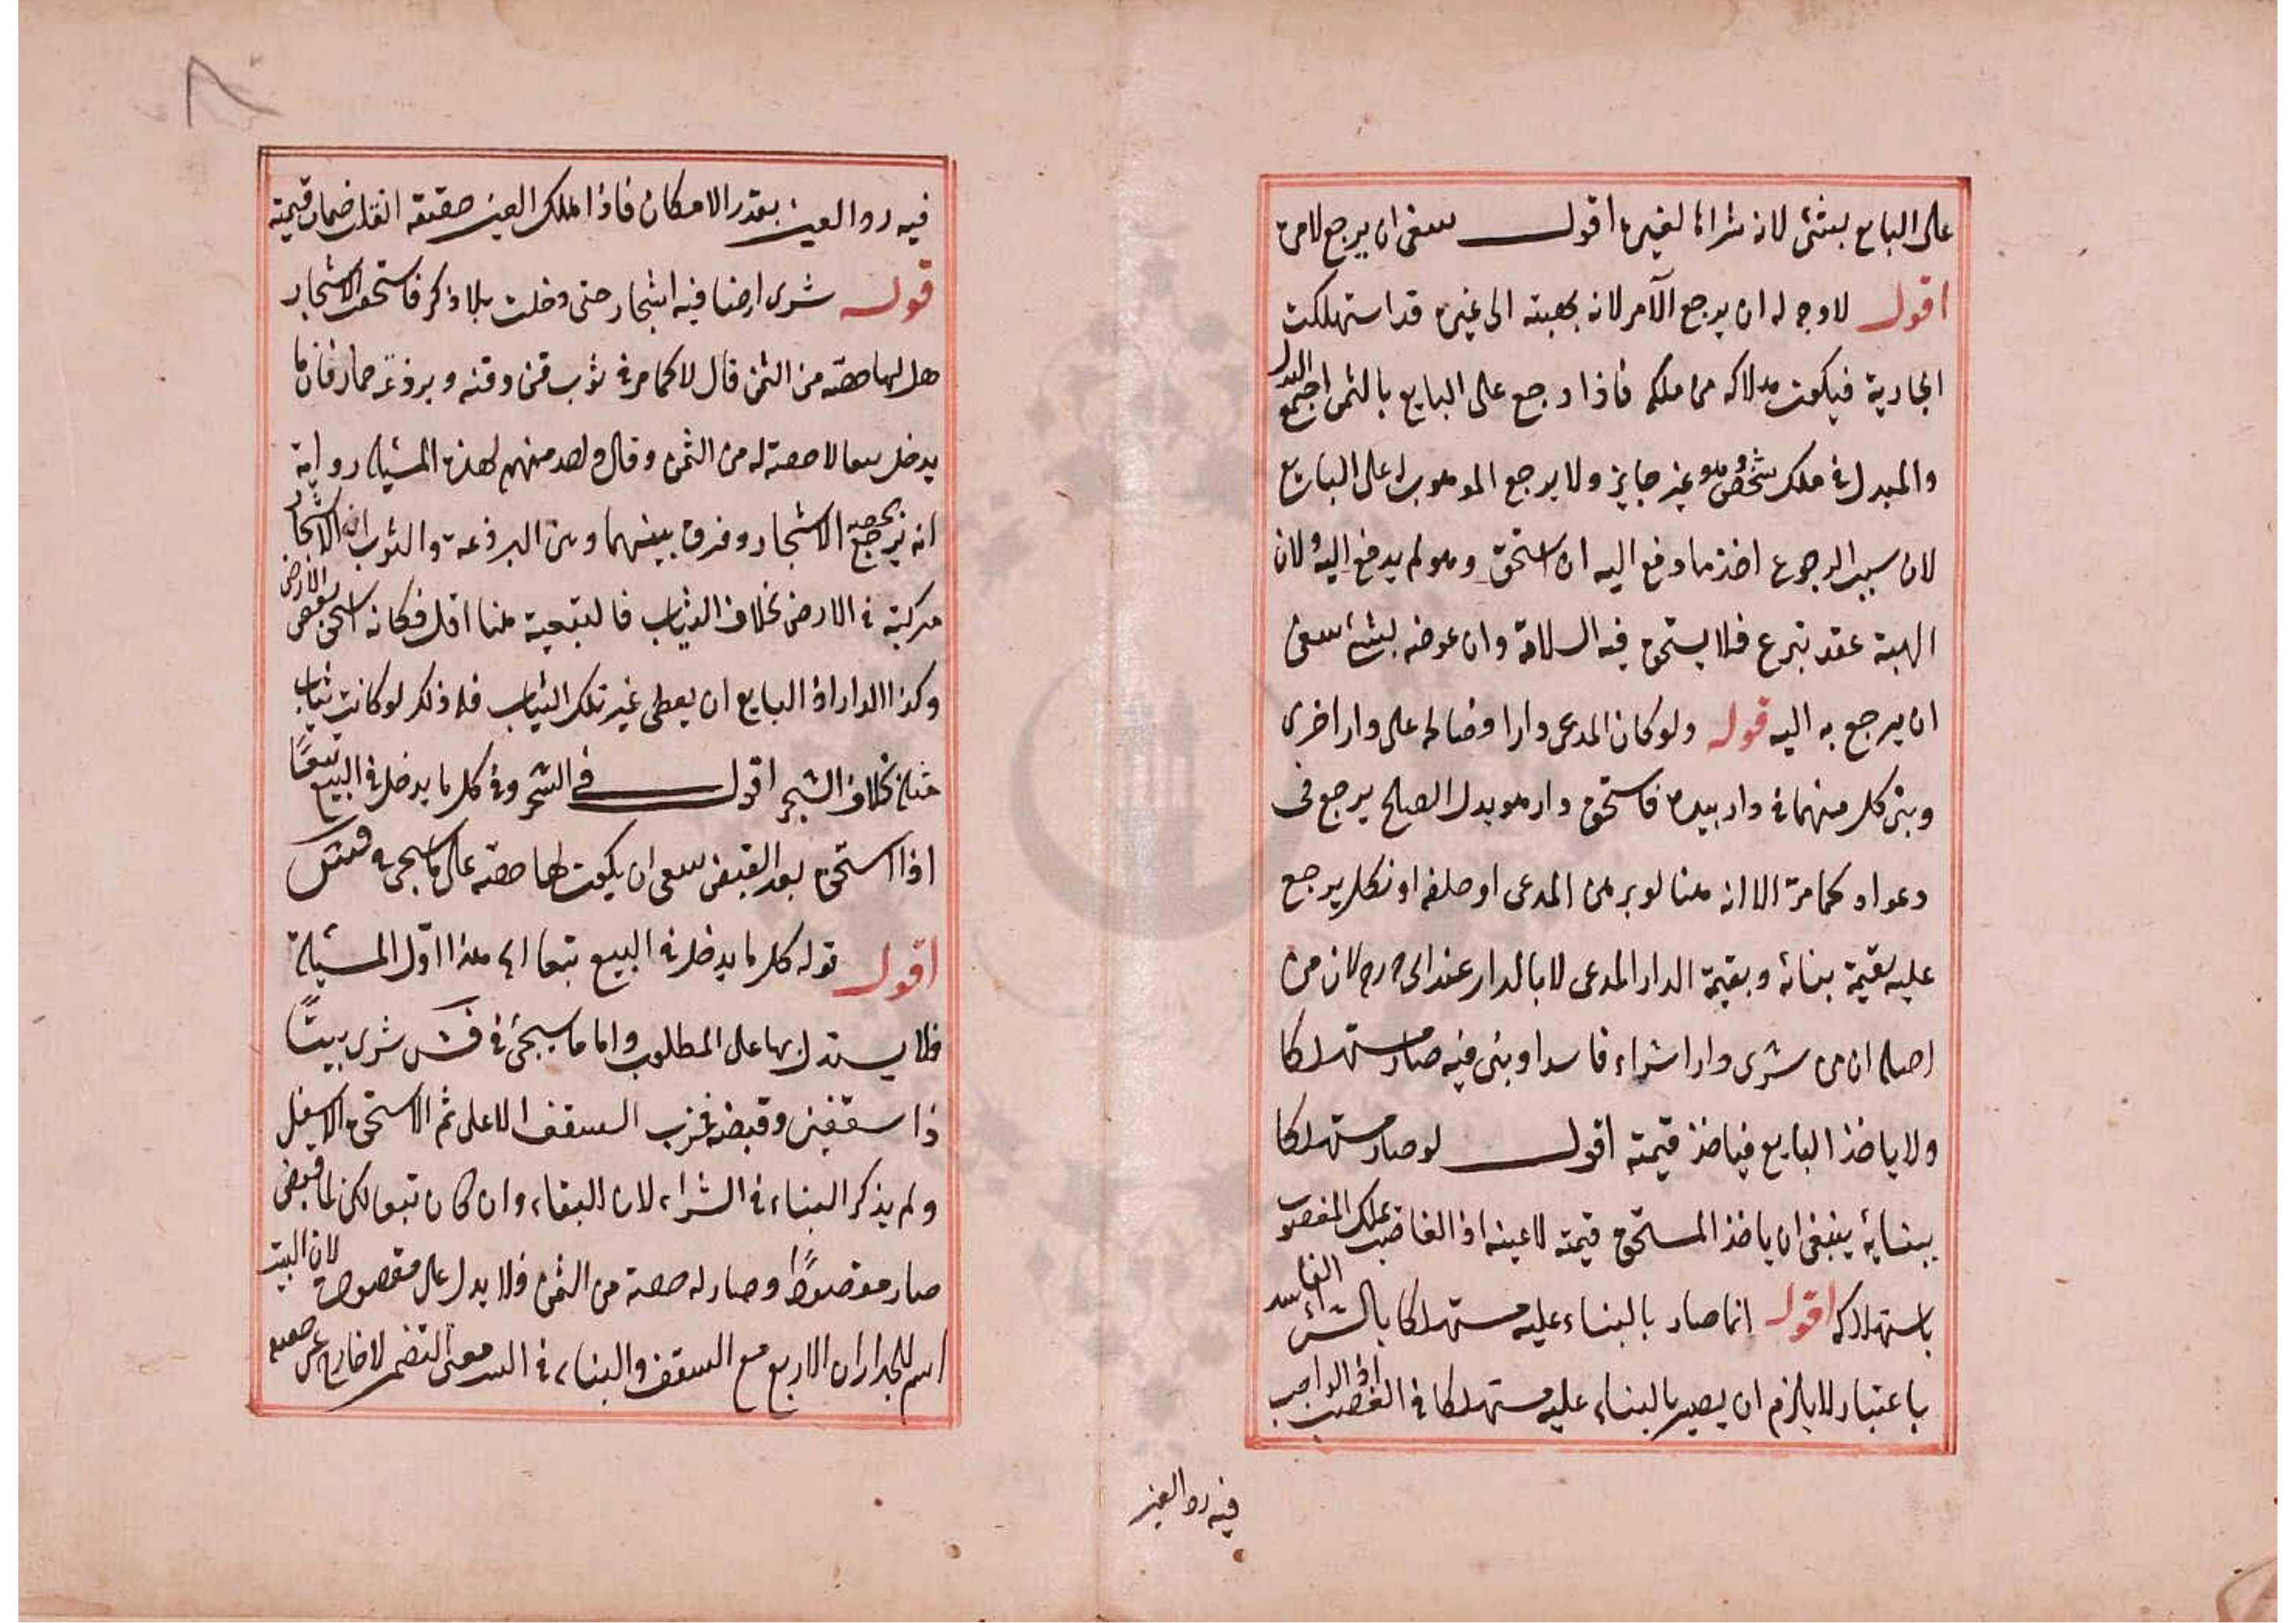 على البايع بشئ لانه شراها لغيره اقول ينبغى ان يرجع لامره
اقول لا وجه له ان يرجع الآمر لانه بهبته الى غيره قد استهلكت
الجارية فيكون هلاكه من ملكه فاذا رجع على البايع بالثمن اجتمع البدل
والمبدل فى ملك شخص وهو غير جايز ولا يرجع الموهوب له على البايع
لان سبب الرجوع اخذ ما دفع اليه ان استحق وهو لم يدفع اليه ولان
الهبة عقد تبرع فلا يستحق فيه السلامة وان عوضه بشئ ينبغى
ان يرجع به اليه قوله ولو كان المدعى دارا وصالحه على دار اخرى
وبنى كل منهما فى دار بيده فاستحق دار هو بدل الصلح يرجع فى
دعواه كما مرّ الا انه هنا لو برهن المدعى او حلفه او نكل يرجع
عليه بقيمة بنائه وبقيمة الدار المدعى لا بالدار عند ابى ح رح لان من
اصله ان من شرى دارا شراء فاسدا وبنى فيه صار مستهلكا
ولا ياخذ البايع فياخذ قيمته اقول لو صار مستهلكا
ببنايه ينبغى ان ياخذ المستحق قيمته لا عينه اذ الغاصب يملك المغصوب
باستهلاكه اقول انما صار بالبناء عليه مستهلكا بالشراء الفاسد
باعتبار لا يلزم ان يصير بالبناء عليه مستهلكا فى الغصب اذ الواجب
فيه رد العين
فيه رد العين بقدر الامكان فاذا هلك العين حقيقة انقلب ضمان قيمته
قوله شرى ارضا فيه اشجار حتى دخلت بلا ذكر فاستحقت الاشجار
هل لها حصة من الثمن قال لا كما مر فى ثوب قنّ وقنه وبرذعة حمار فان ما
يدخل تبعا لا حصة له من الثمن وقال واحد منهم لهذه المسئلة رواية
انه يرجع بحصة الاشجار وفرق بينهما وبين البرذعة والثوب ان الاشجار
مركبة فى الارض بخلاف الثياب فالتبعية هنا اقل فكانه استحق بعض الارض
وكذا لو اراد البايع ان يعطى غير تلك الثياب فله ذلك لو كانت ثياب
مثله بخلاف الشجر اقول فى الشجر وفى كل ما يدخل فى البيع تبعًا
اذا استحق بعد القبض ينبغى ان يكون لها حصة على ما سيجئ فى فش
اقول قوله كل ما يدخل فى البيع تبعا الخ هذا اوّل المسئلة
فلا يستدل بها على المطلوب واما ما سيجئ فى فش شرى بيتًا
ذا سقفين وقبضه فخرب السقف الاعلى ثم استحق الاسفل
ولم يذكر البناء فى الشراء لان البناء وان كان تبعا لكن لما قبض
صار مقصودًا وصار له حصة من الثمن فلا يدل على مقصوده لان البيت
اسم للجداران الاربع مع السقف والبناء فى